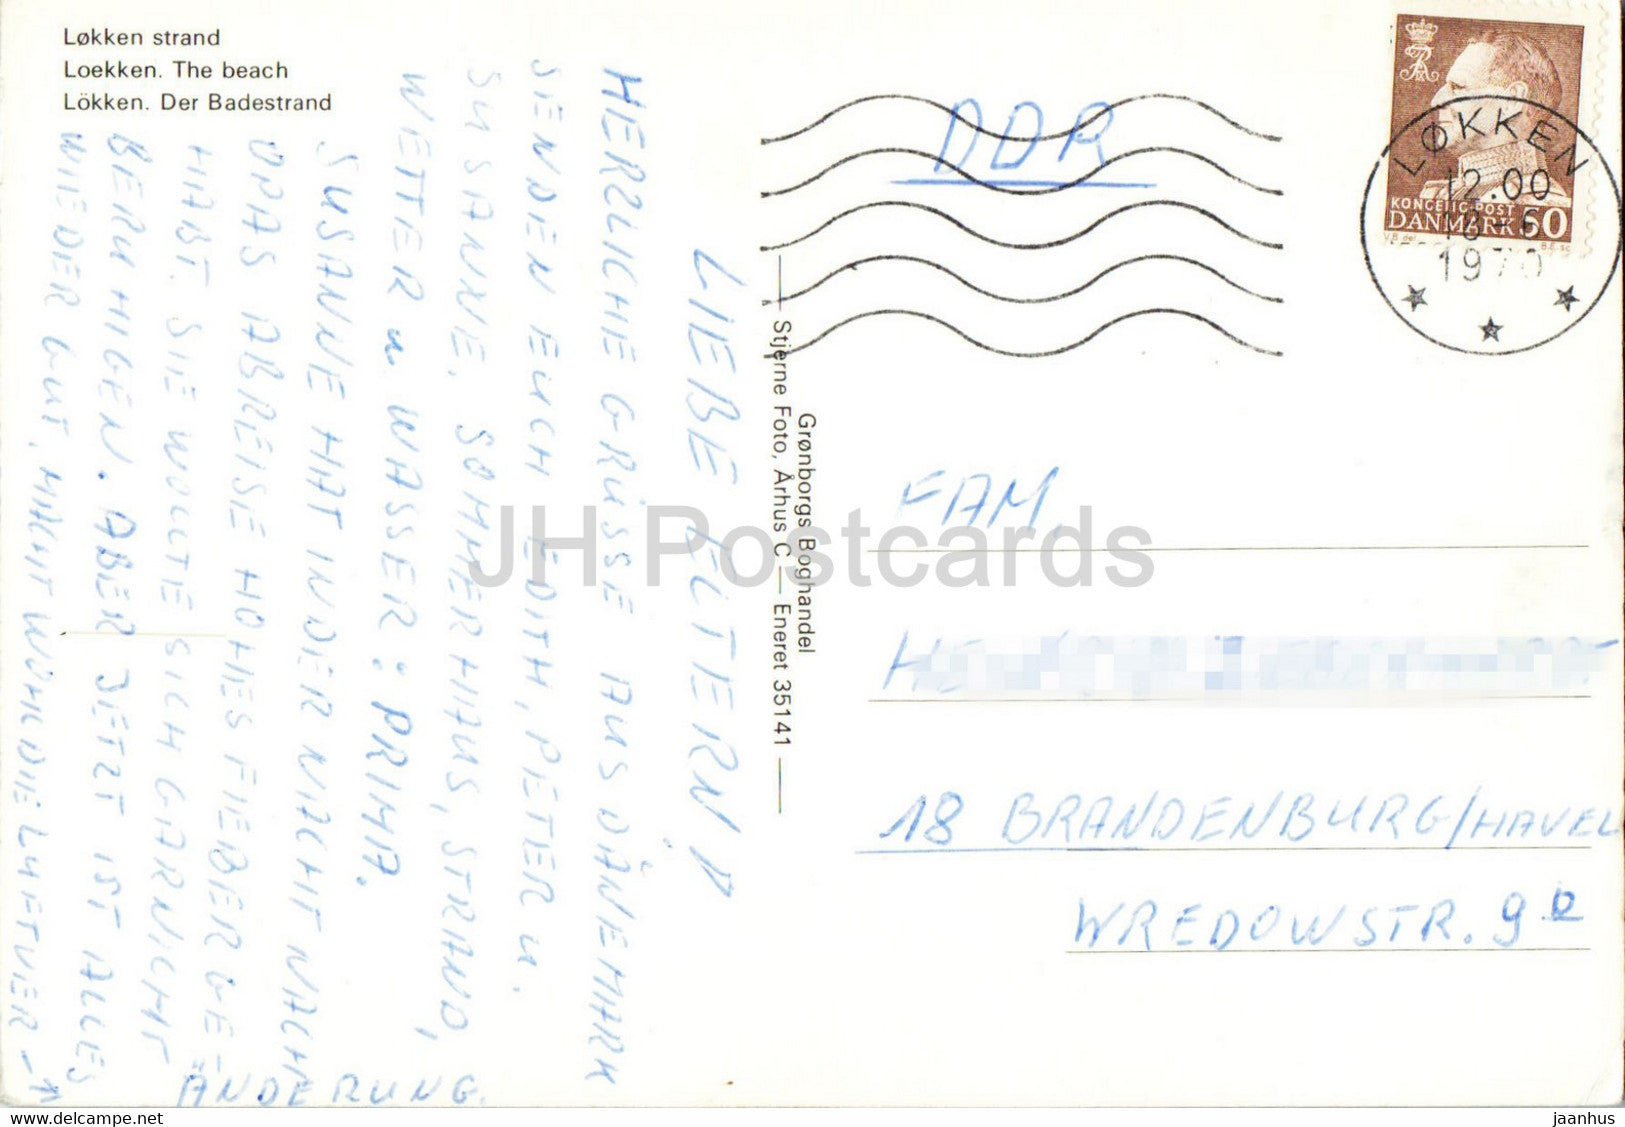 Løkken strand
Loekken. The beach
Lökken. Der Badestrand
LIEBE ELTERN!
HERZLICHE GRÜSSE AUS DÄNEMARK
SENDEN EUCH EDITH, PETER u.
SUSANNE. SOMMERHAUS, STRAND,
WETTER u. WASSER: PRIMA.
SUSANNE HAT IN DER NACHT NACH
OPAS ABREISE HOHES FIEBER GE-
HABT. SIE WOLLTE SICH GARNICHT
BERUHIGEN. ABER JETZT IST ALLES
WIEDER GUT. MACHT WOHL DIE LUFTVER-
ÄNDERUNG.
Grønborgs Boghandel
Stjerne Foto, Århus C — Eneret 35141
DDR
LØKKEN
12.00
1970
KONGELIG POST
DANMARK 60
V.B. del.
B.E. sc.
FAM.
18 BRANDENBURG/HAVEL
WREDOWSTR. 9D
JH Postcards
delcampe.net
jaanhus